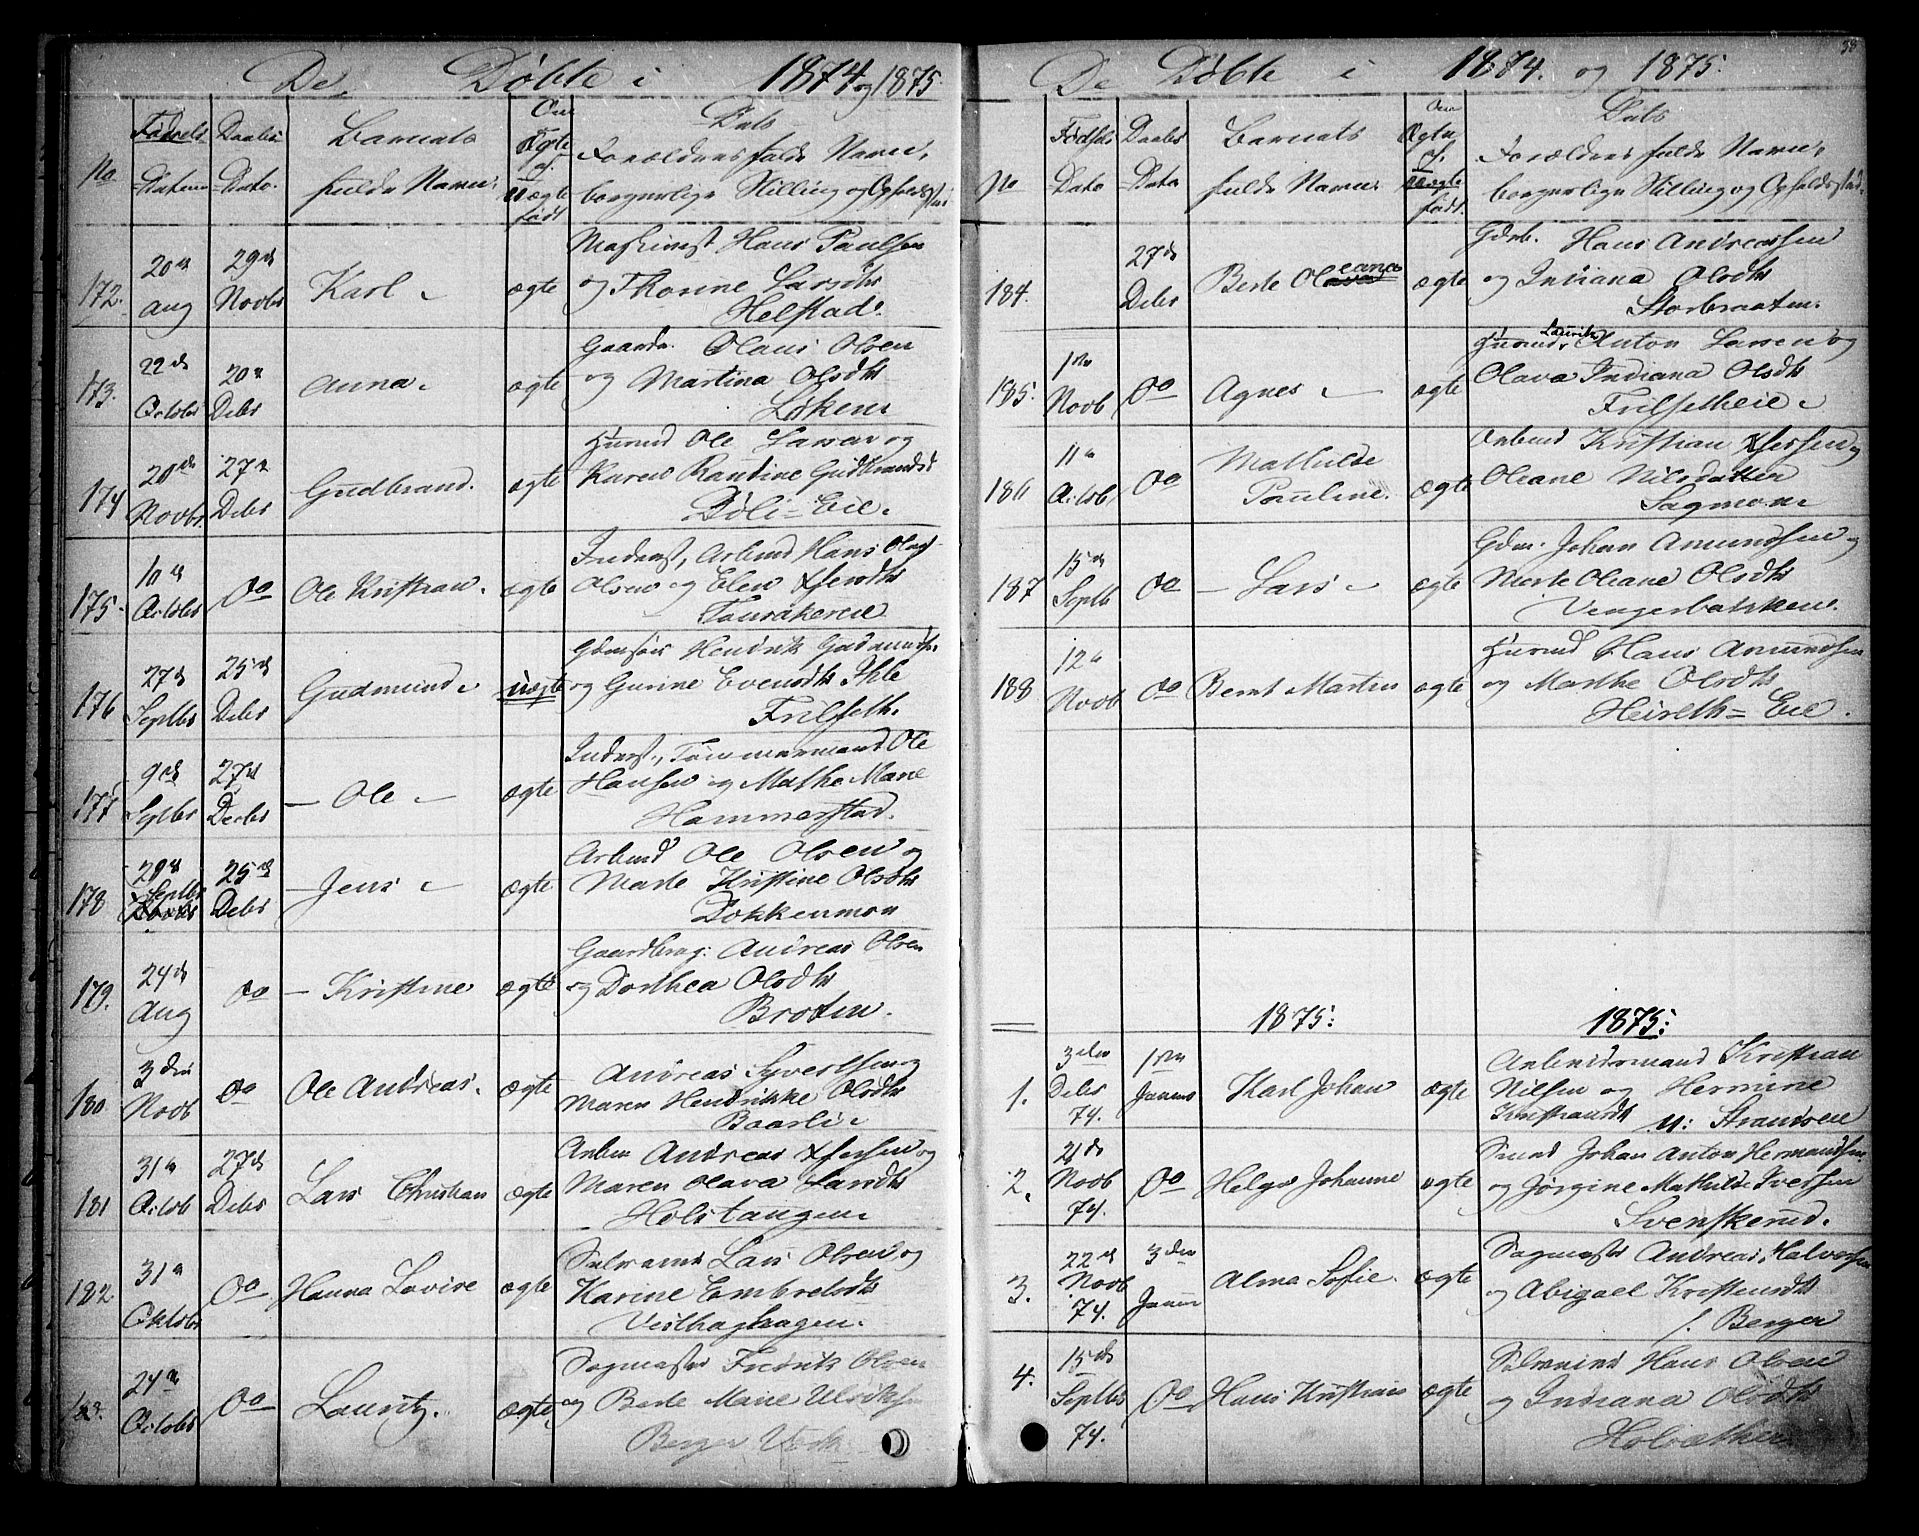 De Døbte i 1874 og 1875
No
Fødsels Datum
Daabs Dato.
Barnets fulde Navn.
Om Ægte el. Uægte født
Dets Forældres fulde Navn, borgerlige Stilling og Opholdssted
172. 20de Aug
29de Novbr
Karl
ægte
Maskinist Hans Paulsen
og Thorine Larsdtr
Helstad.
173. 22de Octobr
20de Debr
Anna
ægte
Gaardm. Olaus Olsen
og Martina Olsdtr
Løken
174 20de Novbr
27de Debr
Gudbrand.
ægte
Husmd Ole Larsen og
Karen Gudbrandsd
Døli-Eie.
175. 10de Octobr
do
Ole Kristian.
ægte
Inderst, Arbmd Hans
Olsen og Elen
176 27de Septbr
25de Debr
Gudmund
uægte
Hendrik Gudmunds.
og Gurine Evensdtr Ihle
Frilseth.
177 9de Septbr
27de Decbr
Ole
ægte
Inderst, Tømmermand Ole
Hansen og Mathe Marie
Hammerstad.
178 29de Septbr
25de Debr
Jens
ægte
Arbmd Ole Olsen og
Marte Kristine Olsdtr
Dokkenmon
179. 24de Aug
do
Kristine
ægte
Gaardbrug: Andreas Olsen
og Dorthea Olsdtr
Broten.
180 3die Novb
do
Ole Andreas.
ægte
Andreas Syvertsen og
Maren Hendrikke Olsdtr
Baarli
181 31te Octob
27de Debr
Lars Christian
ægte
Arbm Andreas Xfersen og
Maren Olava Larsdtr
Holstangen
182. 31te Oktobr
do
Hanna Lovise
ægte
Selveier Lars Olsen og
Karine Embretsdtr
183. 24de Octobr
do
Lauritz.
ægte
Sagmester Fredrik Olsen
og Berte Marie Ulriksen
Berger
De Døbte i 1874. og 1875.
38
No
Fødsels Dato
Daabs Dato
Barnets fulde Navn.
Om Ægte el. Uægte født.
Dets Forældres fulde Navn, borgerlige Stilling og Opholdssted
184. 27de Debr
Berte Oleana
ægte
Gdrb. Hans Andreassen
og Indiana Olsdtr
Storbraaten.
185. 1ste Novb
do
Agnes
ægte
Husmd. Lauritz Anton Larsen og
Olava Indiana Olsdtr
Frilsetheie
186 11te Octob
do
Mathilde
Pauline.
ægte
Arbmd Kristian Xfersen og
Oleane Nilsdatter
Sagmoen
187 15de Septb
do
Lars
ægte
Gdm. Johan Amundsen og
Merte Oleane Olsdtr
Vengerbakken.
188 12te Novb
do
Bernt Martin
ægte
Husmd Hans Amundsen
og Marthe Olsdtr
Heireth-Eie.
1875:
1875:
1. 3die Debr 74.
1ste Januar
Karl Johan
ægte
Arbeidsmand Kristian
Nilsen og Hermine
Kristiansdtr u: Strandseie
2. 21de Novb 74.
do
Helga Johanne
ægte
Smed Johan Anton Hermansen
og Jørgine Mathilde Iversen
Svenskerud.
3. 22de Novb 74.
3die Januar
Alma Sofie.
ægte
Sagmester Andreas Halversen
og Abigael Kristensdtr
f. Berger
4. 15de Septbr 74.
do
Hans Kristian
ægte
Selveier Hans Olsen
og Indiana Olsdtr